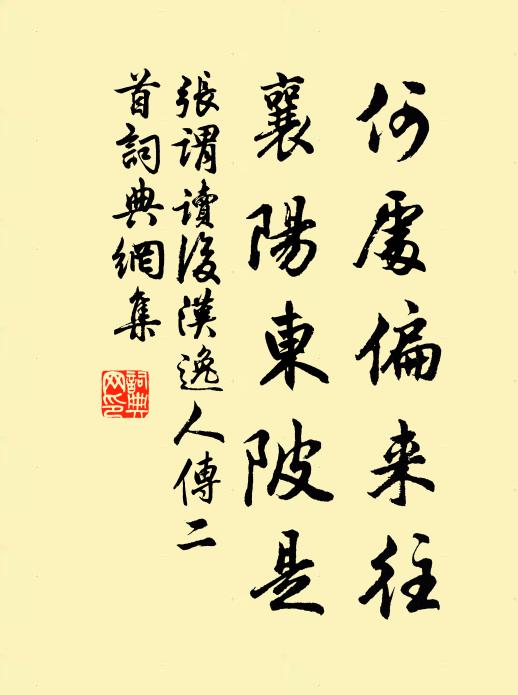 何處偏来往
襄陽東陂是
張謂讀後漢逸人傳二
首詞典網集
詞典
网印